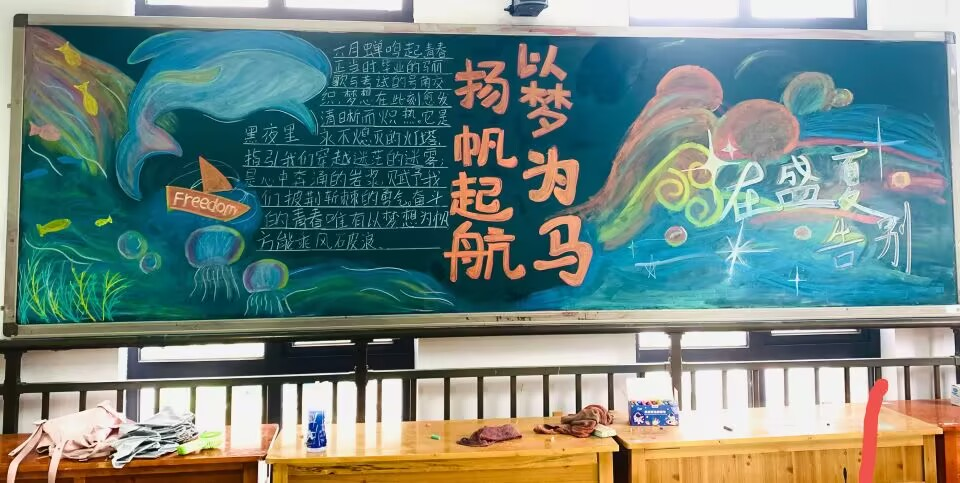 六月蝉鸣起青春
正当时毕业的骊
歌与考试的号角交
织.梦想在此刻愈发
清晰而炽热.它是
黑夜里 永不熄灭的灯塔,
指引我们穿越迷茫的迷雾;
是心中奔涌的岩浆,赋予我
们披荆斩棘的勇气.奋斗
的青春唯有以梦想为帆
方能乘风破浪.
Freedom
以梦为马
扬帆起航
在盛夏
告别